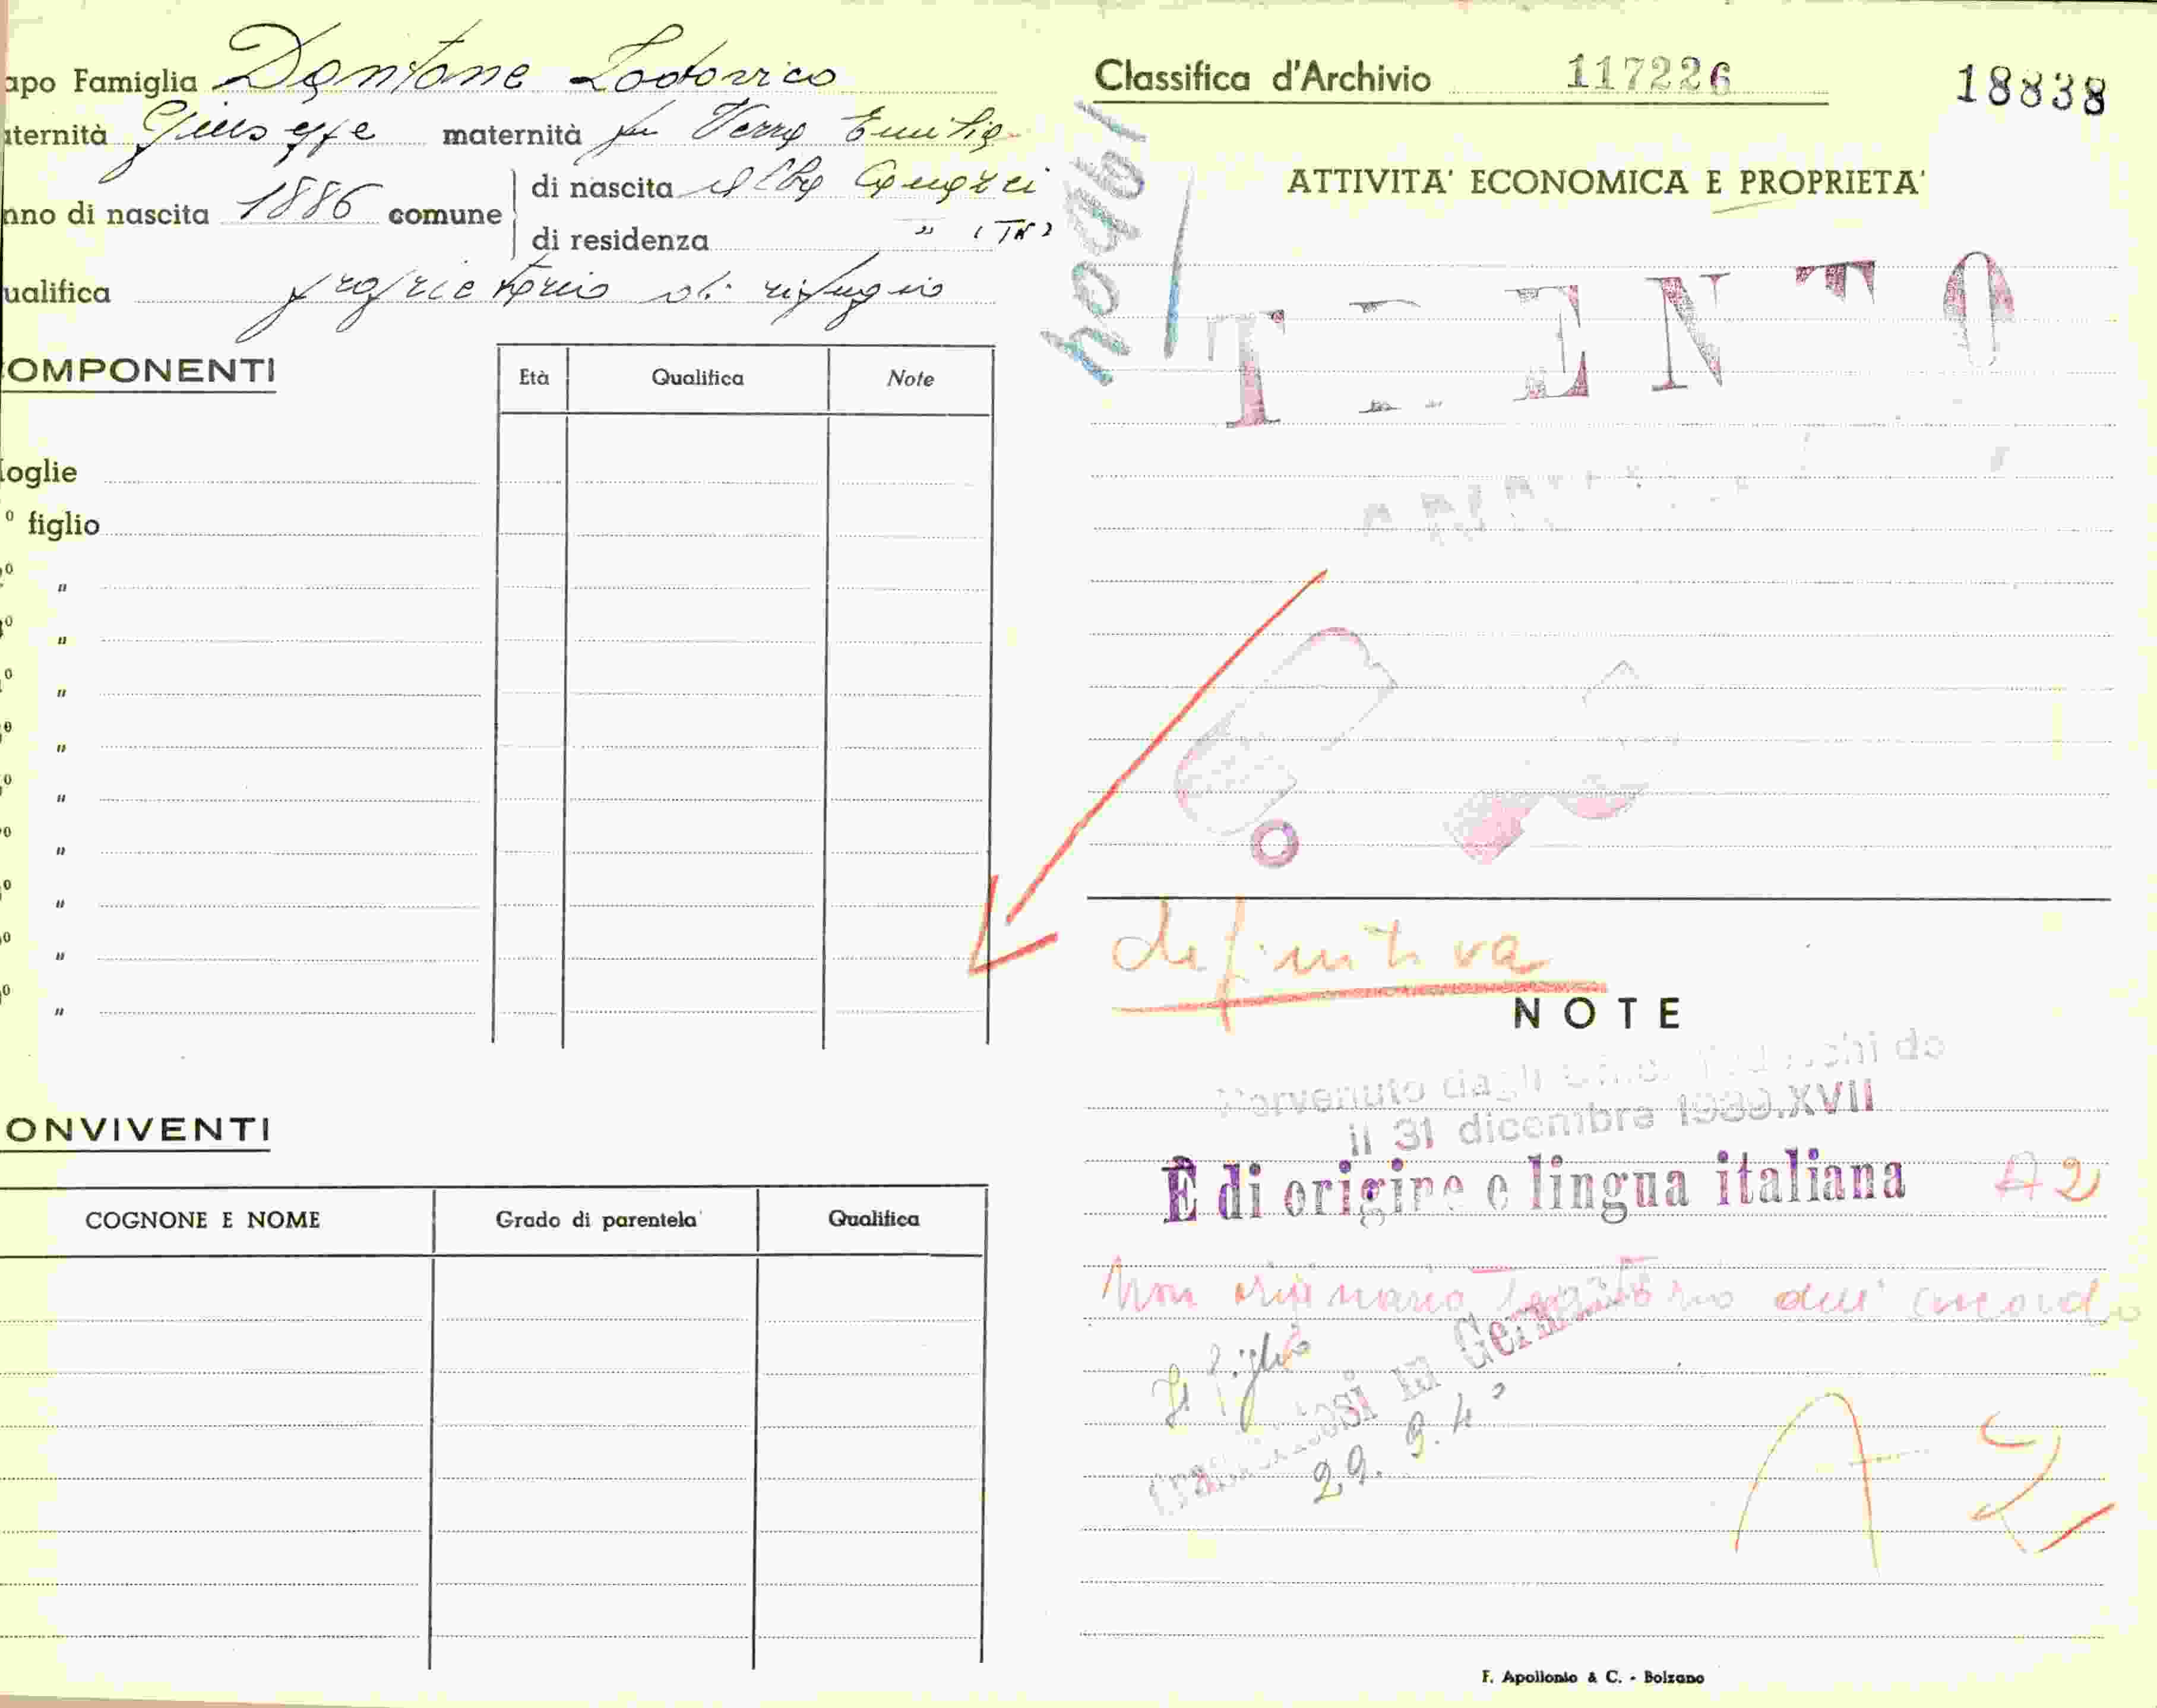 apo Famiglia Dantone Lodovico
aternità Giuseppe maternità fu Verra Emilia
nno di nascita 1886 comune di nascita Alba Canazei
di residenza " (TN)
ualifica proprietario di rifugio
OMPONENTI
Età Qualifica Note
oglie
° figlio
"
"
"
"
"
"
"
"
"
ONVIVENTI
COGNONE E NOME Grado di parentela Qualifica
Classifica d'Archivio 117226 18838
ATTIVITA' ECONOMICA E PROPRIETA'
T ENTO
definitiva
NOTE
Pervenuto dagli Uffici Tedeschi do
il 31 dicembre 1939.XVII
È di origine e lingua italiana A2
Non originario Territorio dell' accordo
Il figlio
in Germ
29. 9. 4
A 2
F. Apollonio & C. - Bolzano